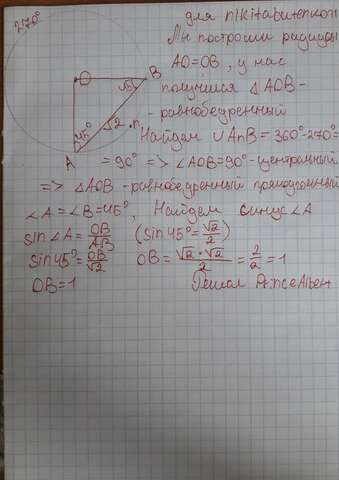 270°
для nikitaburenkon
Мы построили радиусы
AO=OB, у нас
O
B
45°
получился △AOB-
-равнобедренный
√2
n
45°
A
Найдем ∪AnB=360°-270°=
=90° => ∠AOB=90°-центральный
=> △AOB-равнобедренный прямоугольный
∠A=∠B=45°, Найдем синус ∠A
sin∠A=OB/AB (sin45°=√2/2)
sin45°=OB/√2 OB=√2·√2/2=2/2=1
OB=1 Решал PrinceAlbert